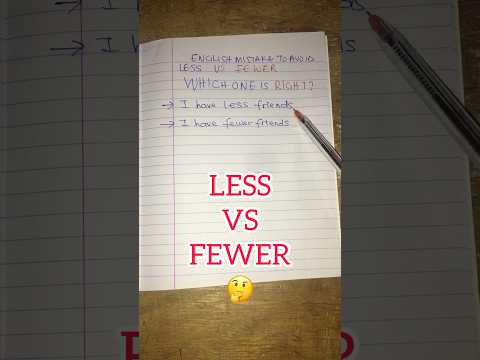 ENGLISH MISTAKE TO AVOID
LESS VS FEWER
WHICH ONE IS RIGHT?
→ I have less friends
→ I have fewer friends
LESS
VS
FEWER
🤔